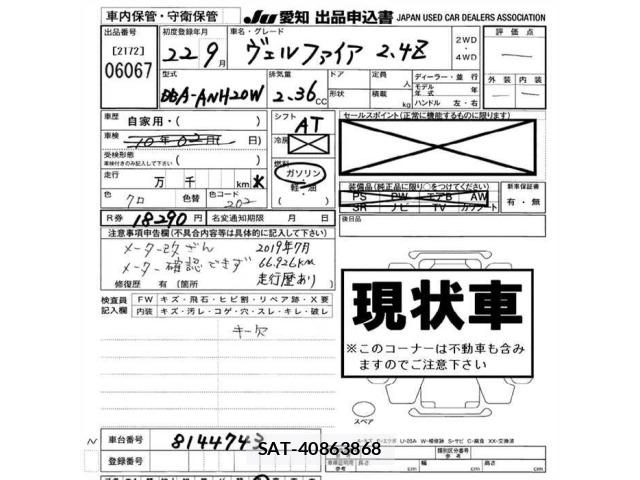 車内保管・守衛保管 JU 愛知 出品申込書 JAPAN USED CAR DEALERS ASSOCIATION
出品番号 [2172] 06067
初度登録年月 22年9月
車名・グレード ヴェルファイア 2.4Z
2WD・4WD
評価点
型式 DBA-ANH20W
排気量 2.36cc
ドア 形状
定員 人
積載 kg
ディーラー・並行
モデル年式 年
ハンドル 左・右
外装 内装
車歴 自家用・( )
シフト AT
車検 10年02月( 日)
冷房
受検形態 車検付きのみ記入して下さい ( )
燃料 ガソリン・軽・油
走行 万 千 km
色 クロ 色コード 202
R券 18290円 名変通知期限 月 日
セールスポイント(正常に機能するものに限ります)
装備品(純正品に限り○をつけてください)
PS PW エアB AW
SR ナビ TV カワシート
新車保証書 有・無
後日品
注意事項申告欄(不具合内容等は具体的に記入して下さい)
メーター改ざん 2019年7月
メーター確認できず 66.926km
走行歴あり
修復歴 有(箇所 )
検査員記入欄
FW キズ・飛石・ヒビ割・リペア跡・X要
内装 キズ・汚レ・コゲ・穴・スレ・キレ・破レ
キー欠
現状車
※このコーナーは不動車も含みますのでご注意下さい
スペア
車台番号 8144743
SAT-40863868
登録番号
類別区分番号
長さ cm 幅 cm 高さ cm